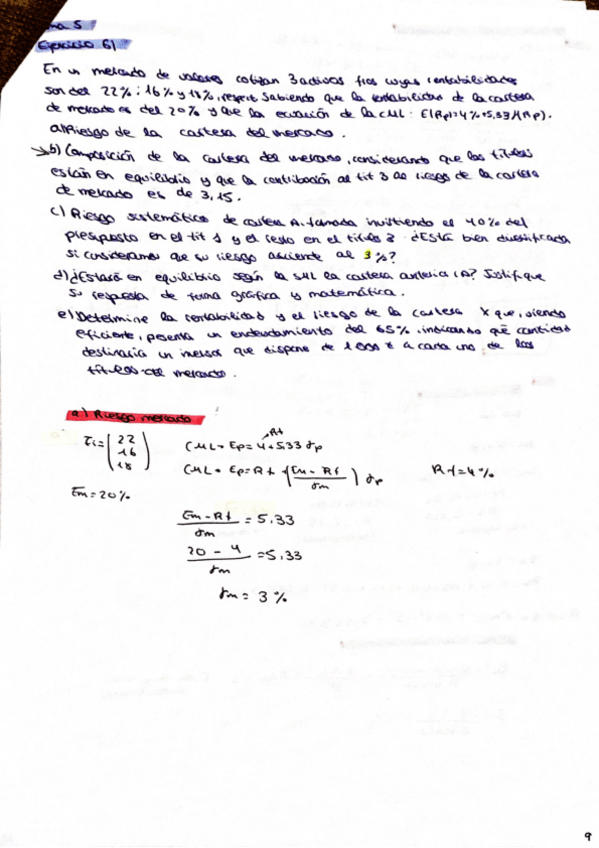 ma 5
Ejercicio 6)
En un mercado de valores cotizan 3 activos fros cuyas rentabilidades
son del 22%; 16% y 18%, respect. Sabiendo que la rentabilidad de la cartera
de mercado es del 20% y que la ecuación de la CML: E(Rp)=4%+5,33 (Rp).
a) Riesgo de la cartera del mercado.
b) Composición de la cartera del mercado, considerando que los títulos
están en equilibrio y que la contribución al tit 3 al riesgo de la cartera
de mercado es de 3,15.
c) Riesgo sistemático de cartera A, formada invirtiendo el 40% del
presupuesto en el tit 1 y el resto en el título 2 ¿Está bien diversificada
si consideramos que su riesgo asciende al 3%?
d) ¿Estará en equilibrio según la SML la cartera anterior (A)? Justifique
su respuesta de forma gráfica y matemática.
e) Determine la rentabilidad y el riesgo de la cartera X que, siendo
eficiente, presenta un endeudamiento del 65%, indicando qué cantidad
destinaría un inversor que dispone de 1000 € a cada uno de los
títulos del mercado.
a) Riesgo mercado
Ei = (22 16 18) CML = Ep = 4 + 5,33 σp
Rf
CML = Ep = Rf + (Em - Rf / σm) σp Rf = 4%
Em = 20%
Em - Rf / σm = 5,33
20 - 4 / σm = 5,33
σm = 3%
9